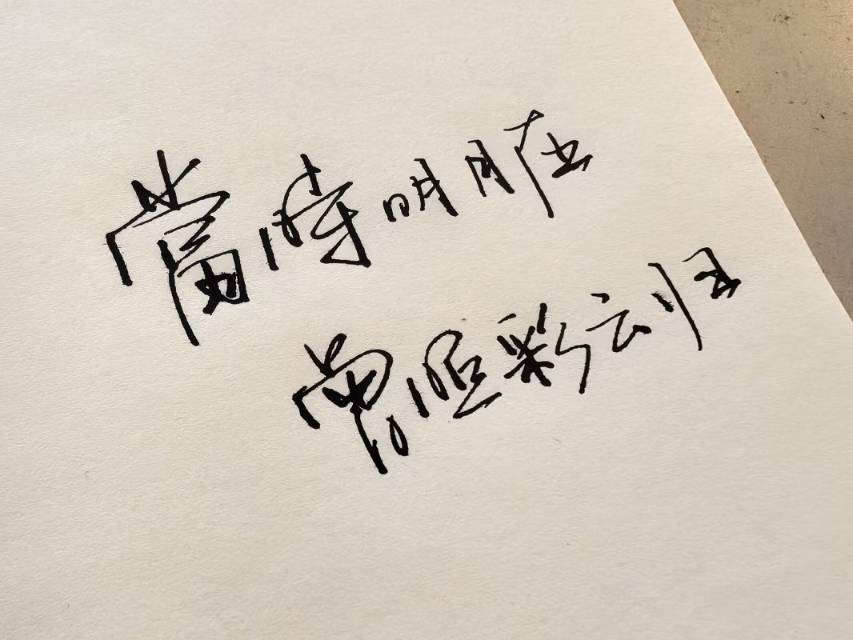 當時明月在
曾照彩云归